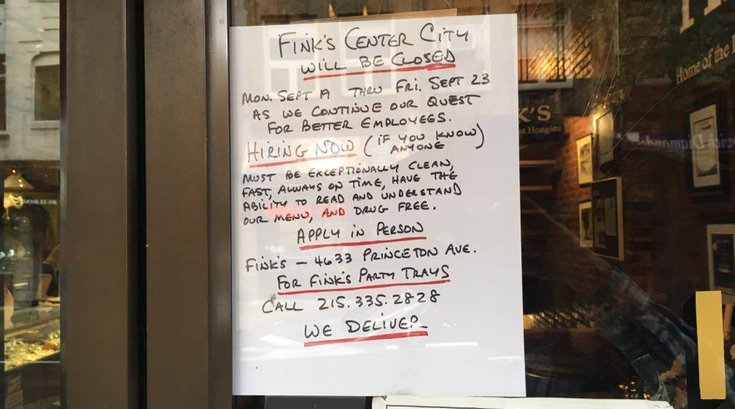 FINK'S CENTER CITY
WILL BE CLOSED
MON. SEPT 19 THRU FRI. SEPT 23
AS WE CONTINUE OUR QUEST
FOR BETTER EMPLOYEES.
HIRING NOW (IF YOU KNOW ANYONE)
MUST BE EXCEPTIONALLY CLEAN,
FAST, ALWAYS ON TIME, HAVE THE
ABILITY TO READ AND UNDERSTAND
OUR MENU, AND DRUG FREE.
APPLY IN PERSON
FINK'S – 4633 PRINCETON AVE.
FOR FINK'S PARTY TRAYS
CALL 215.335.2828
WE DELIVER
K'S
Hoagies
Home of the